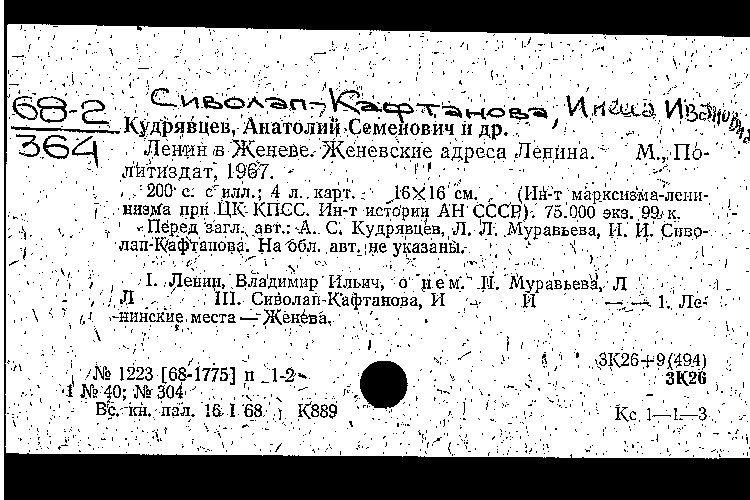 Сиволап-Кафтанова, Инесса Ивановна
68-2
364
Кудрявцев, Анатолий Семенович и др.
Ленин в Женеве. Женевские адреса Ленина. М., По-
литиздат, 1967.
200 с. с илл.; 4 л. карт. 16×16 см. (Ин-т марксизма-лени-
низма при ЦК КПСС. Ин-т истории АН СССР). 75.000 экз. 99 к.
Перед загл. авт.: А. С. Кудрявцев, Л. Л. Муравьева, И. И. Сиво-
лап-Кафтанова. На обл. авт. не указаны.
I. Ленин, Владимир Ильич, о нем. II. Муравьева, Л
Л III. Сиволап-Кафтанова, И И — — 1. Ле-
нинские места — Женева.
3К26+9(494)
№ 1223 [68-1775] п 1-2
3К26
1 № 40; № 304
Вс. кн. пал. 16 I 68 К889 Кс 1—1—3